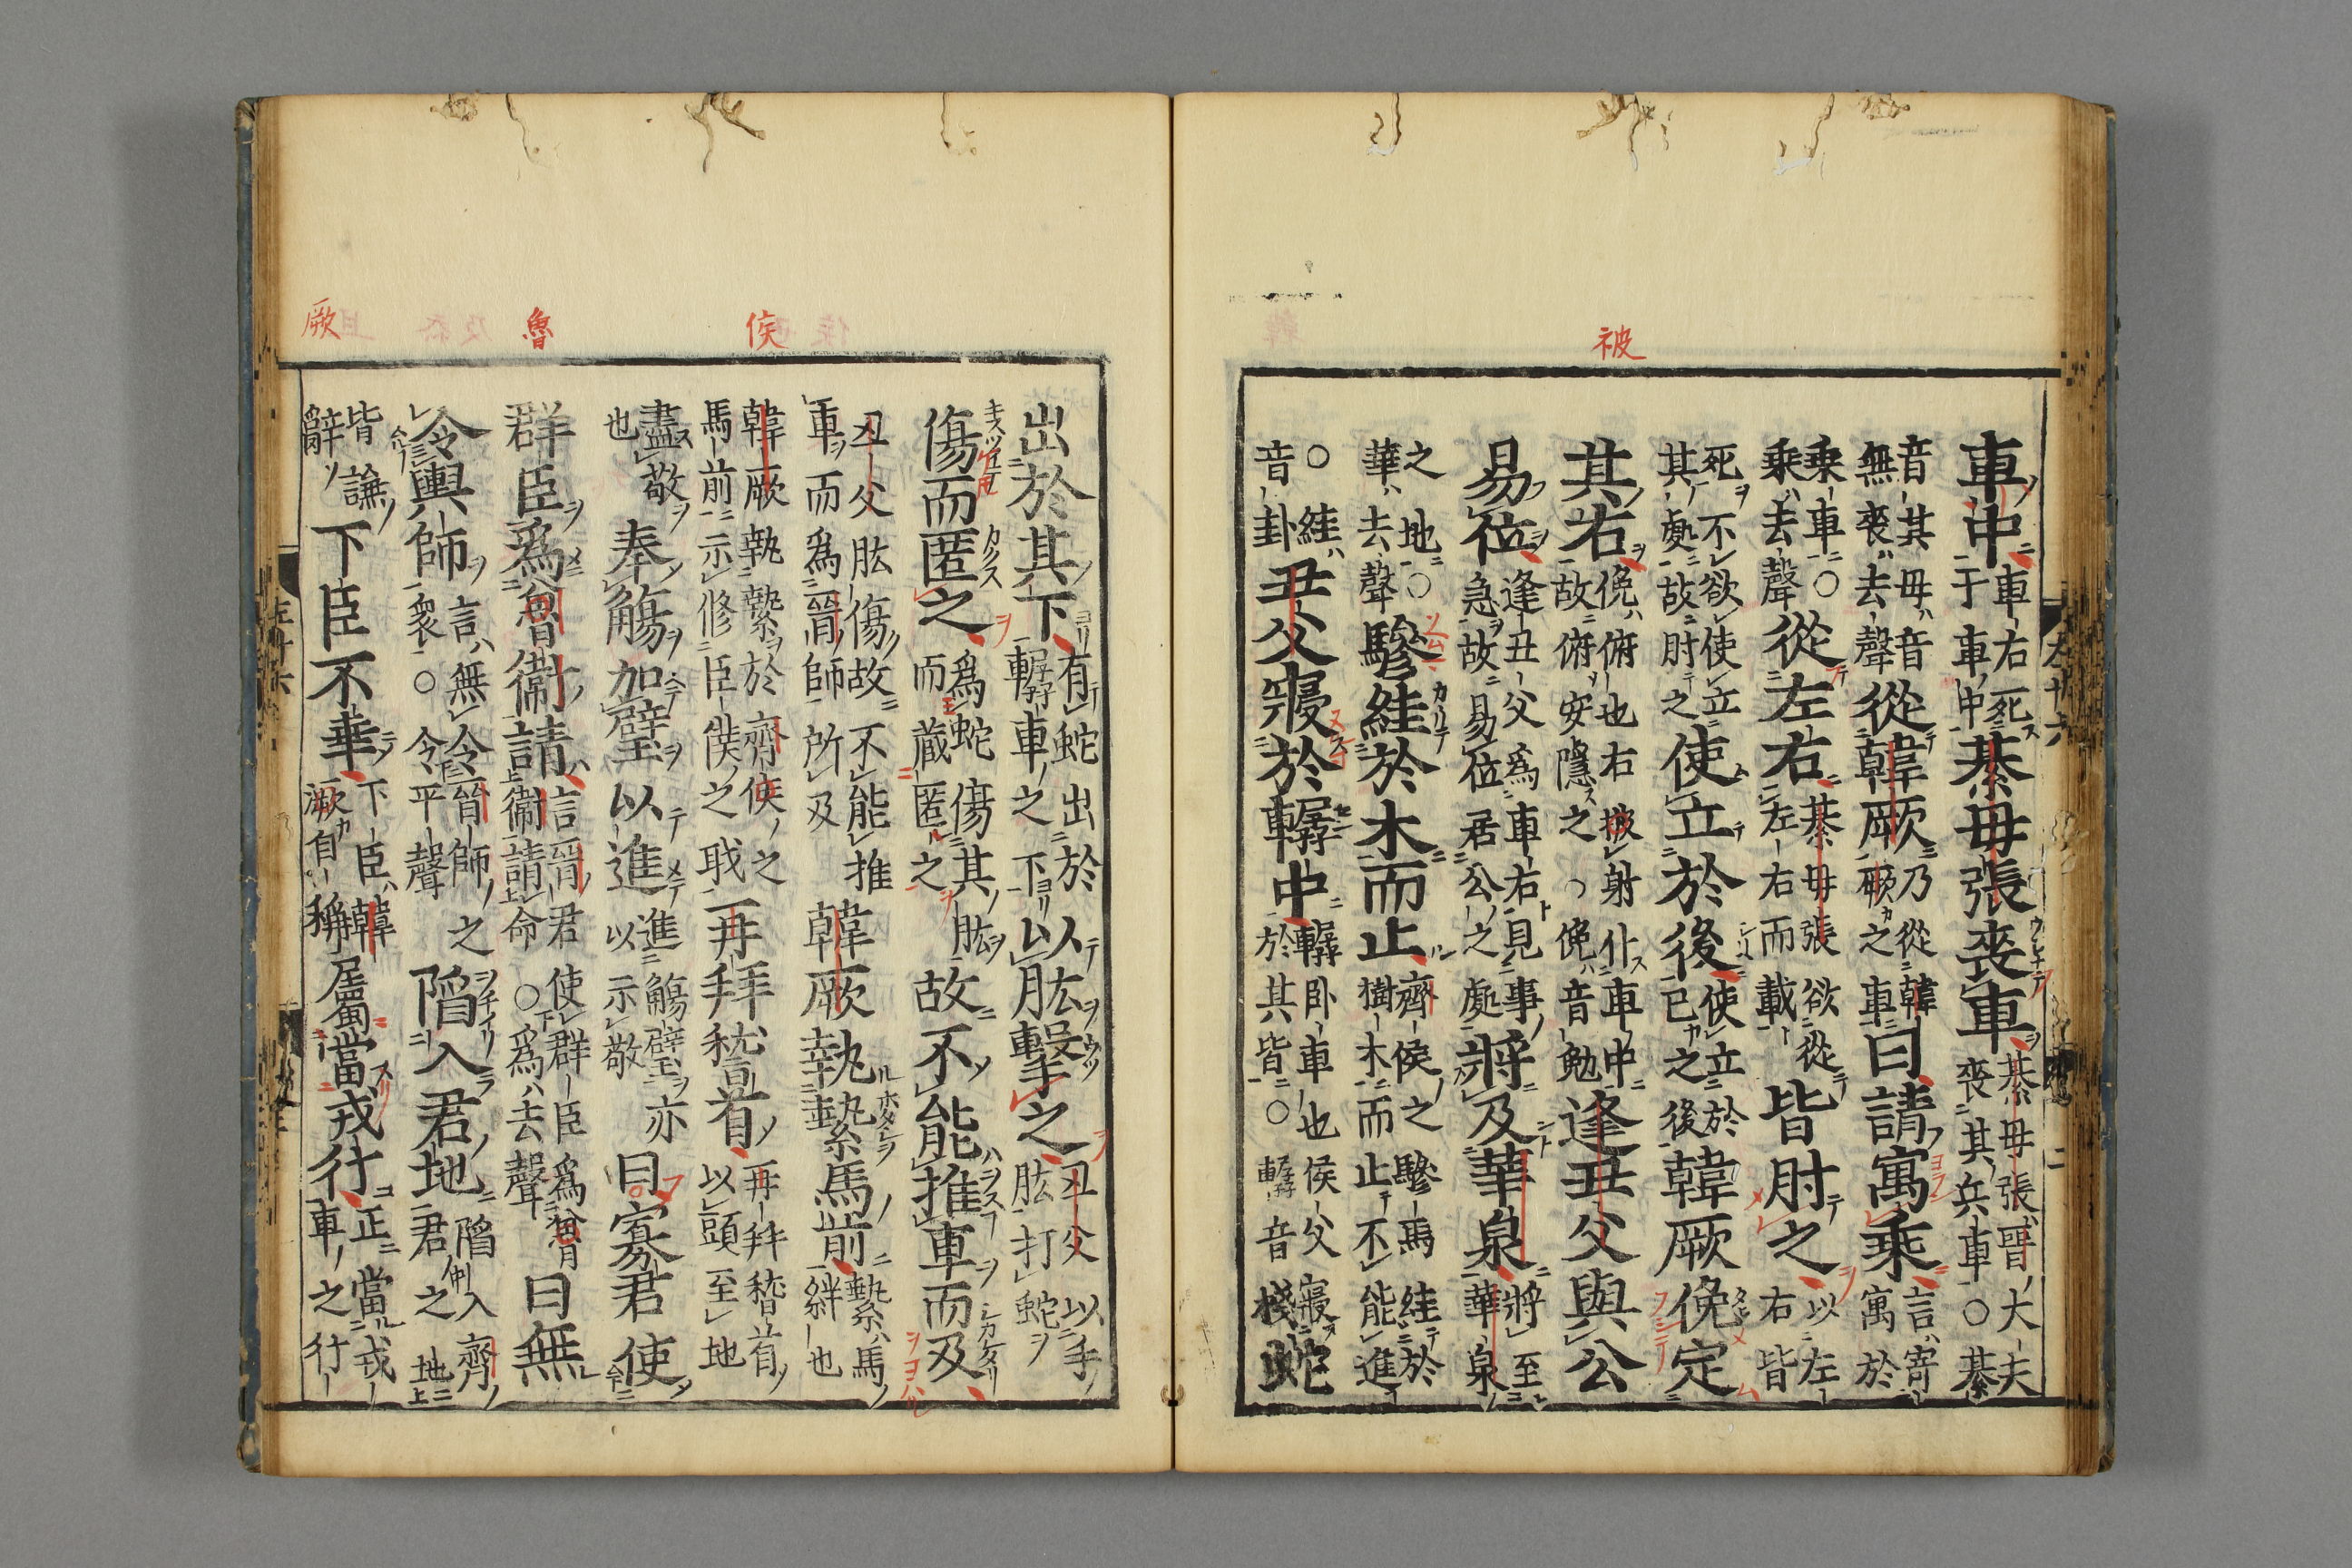 被
車中車右死于車中綦毋張喪車綦毋張晋大夫喪其兵車○綦
音其毋音無喪去聲從韓厥乃從韓厥之車曰請寓乘言寄寓於
乗車○乗去聲從左右綦毋張欲從左右而載皆肘之以左右皆
死不欲使立其處故肘之使立於後使立於已之後韓厥俛定
其右俛俯也右被射仆車中故俯安隱之○俛音勉逢丑父與公
易位逢丑父為車右見事急故易位居公之處將及華泉將至華泉
之地○華去聲驂絓於木而止齊侯之驂馬絓於樹木而止不能進
○絓音卦丑父寢於轏中轏卧車也侯父寢於其皆○轏音棧蛇
侯
魯
厥
出於其下有蛇出於轏車之下以肱擊之丑父以手肱打蛇
傷而匿之為蛇傷其肱而蔵匿之故不能推車而及
丑父肱傷故不能推車而為晋師所及韓厥執縶馬前縶馬絆也
韓厥執縶於齊侯之馬前示修臣僕之職再拜稽首再拜稽首以頭至地
盡敬也奉觴加璧以進進觴璧亦以示敬曰寡君使
群臣爲魯衞請言晋君使群臣爲魯衞請命○爲去聲曰無
令輿師言無令晋師之衆○令平聲陷入君地陷入齊君之地
皆謙辭下臣不幸下臣韓厥自稱屬當戎行正當戎車之行